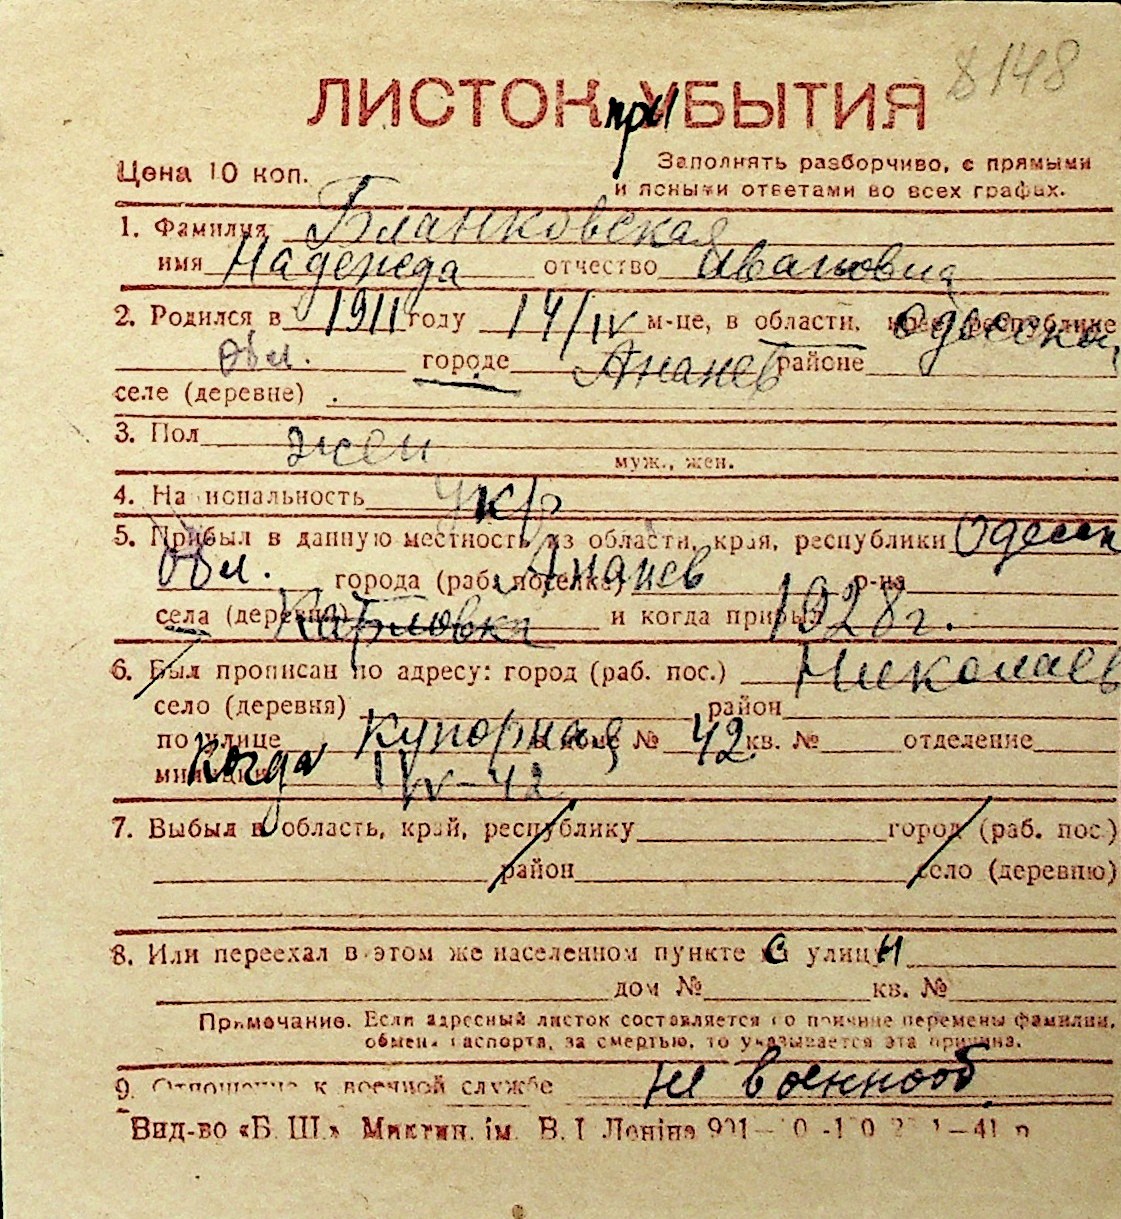 8148
ЛИСТОК при УБЫТИЯ
Цена 10 коп.
Заполнять разборчиво, с прямыми
и ясными ответами во всех графах.
1. Фамилия Бланковская
имя Надежда отчество Ивановна
2. Родился в 1911 году 14/IV м-це, в области, края, республике Одесская
обл. городе Ананев районе
селе (деревне)
3. Пол жен
муж., жен.
4. Национальность укр
5. Прибыл в данную местность из области, края, республики Одесск
обл. города (раб. поселка) Ананев р-на
села (деревни) Карловка и когда прибыл 1928 г.
6. Был прописан по адресу: город (раб. пос.) Николаев
село (деревня) район
по улице Купорная в доме № 42 кв. № отделение
милиции Когда IV-42
7. Выбыл в область, край, республику город (раб. пос.)
район село (деревню)
8. Или переехал в этом же населенном пункте с улицы
дом № кв. №
Примечание. Если адресный листок составляется по причине перемены фамилии,
обмена паспорта, за смертью, то указывается эта причина.
9. Отношение к военной службе не военнооб
Вид-во «Б. Ш.» Миктип. ім. В. І. Леніна